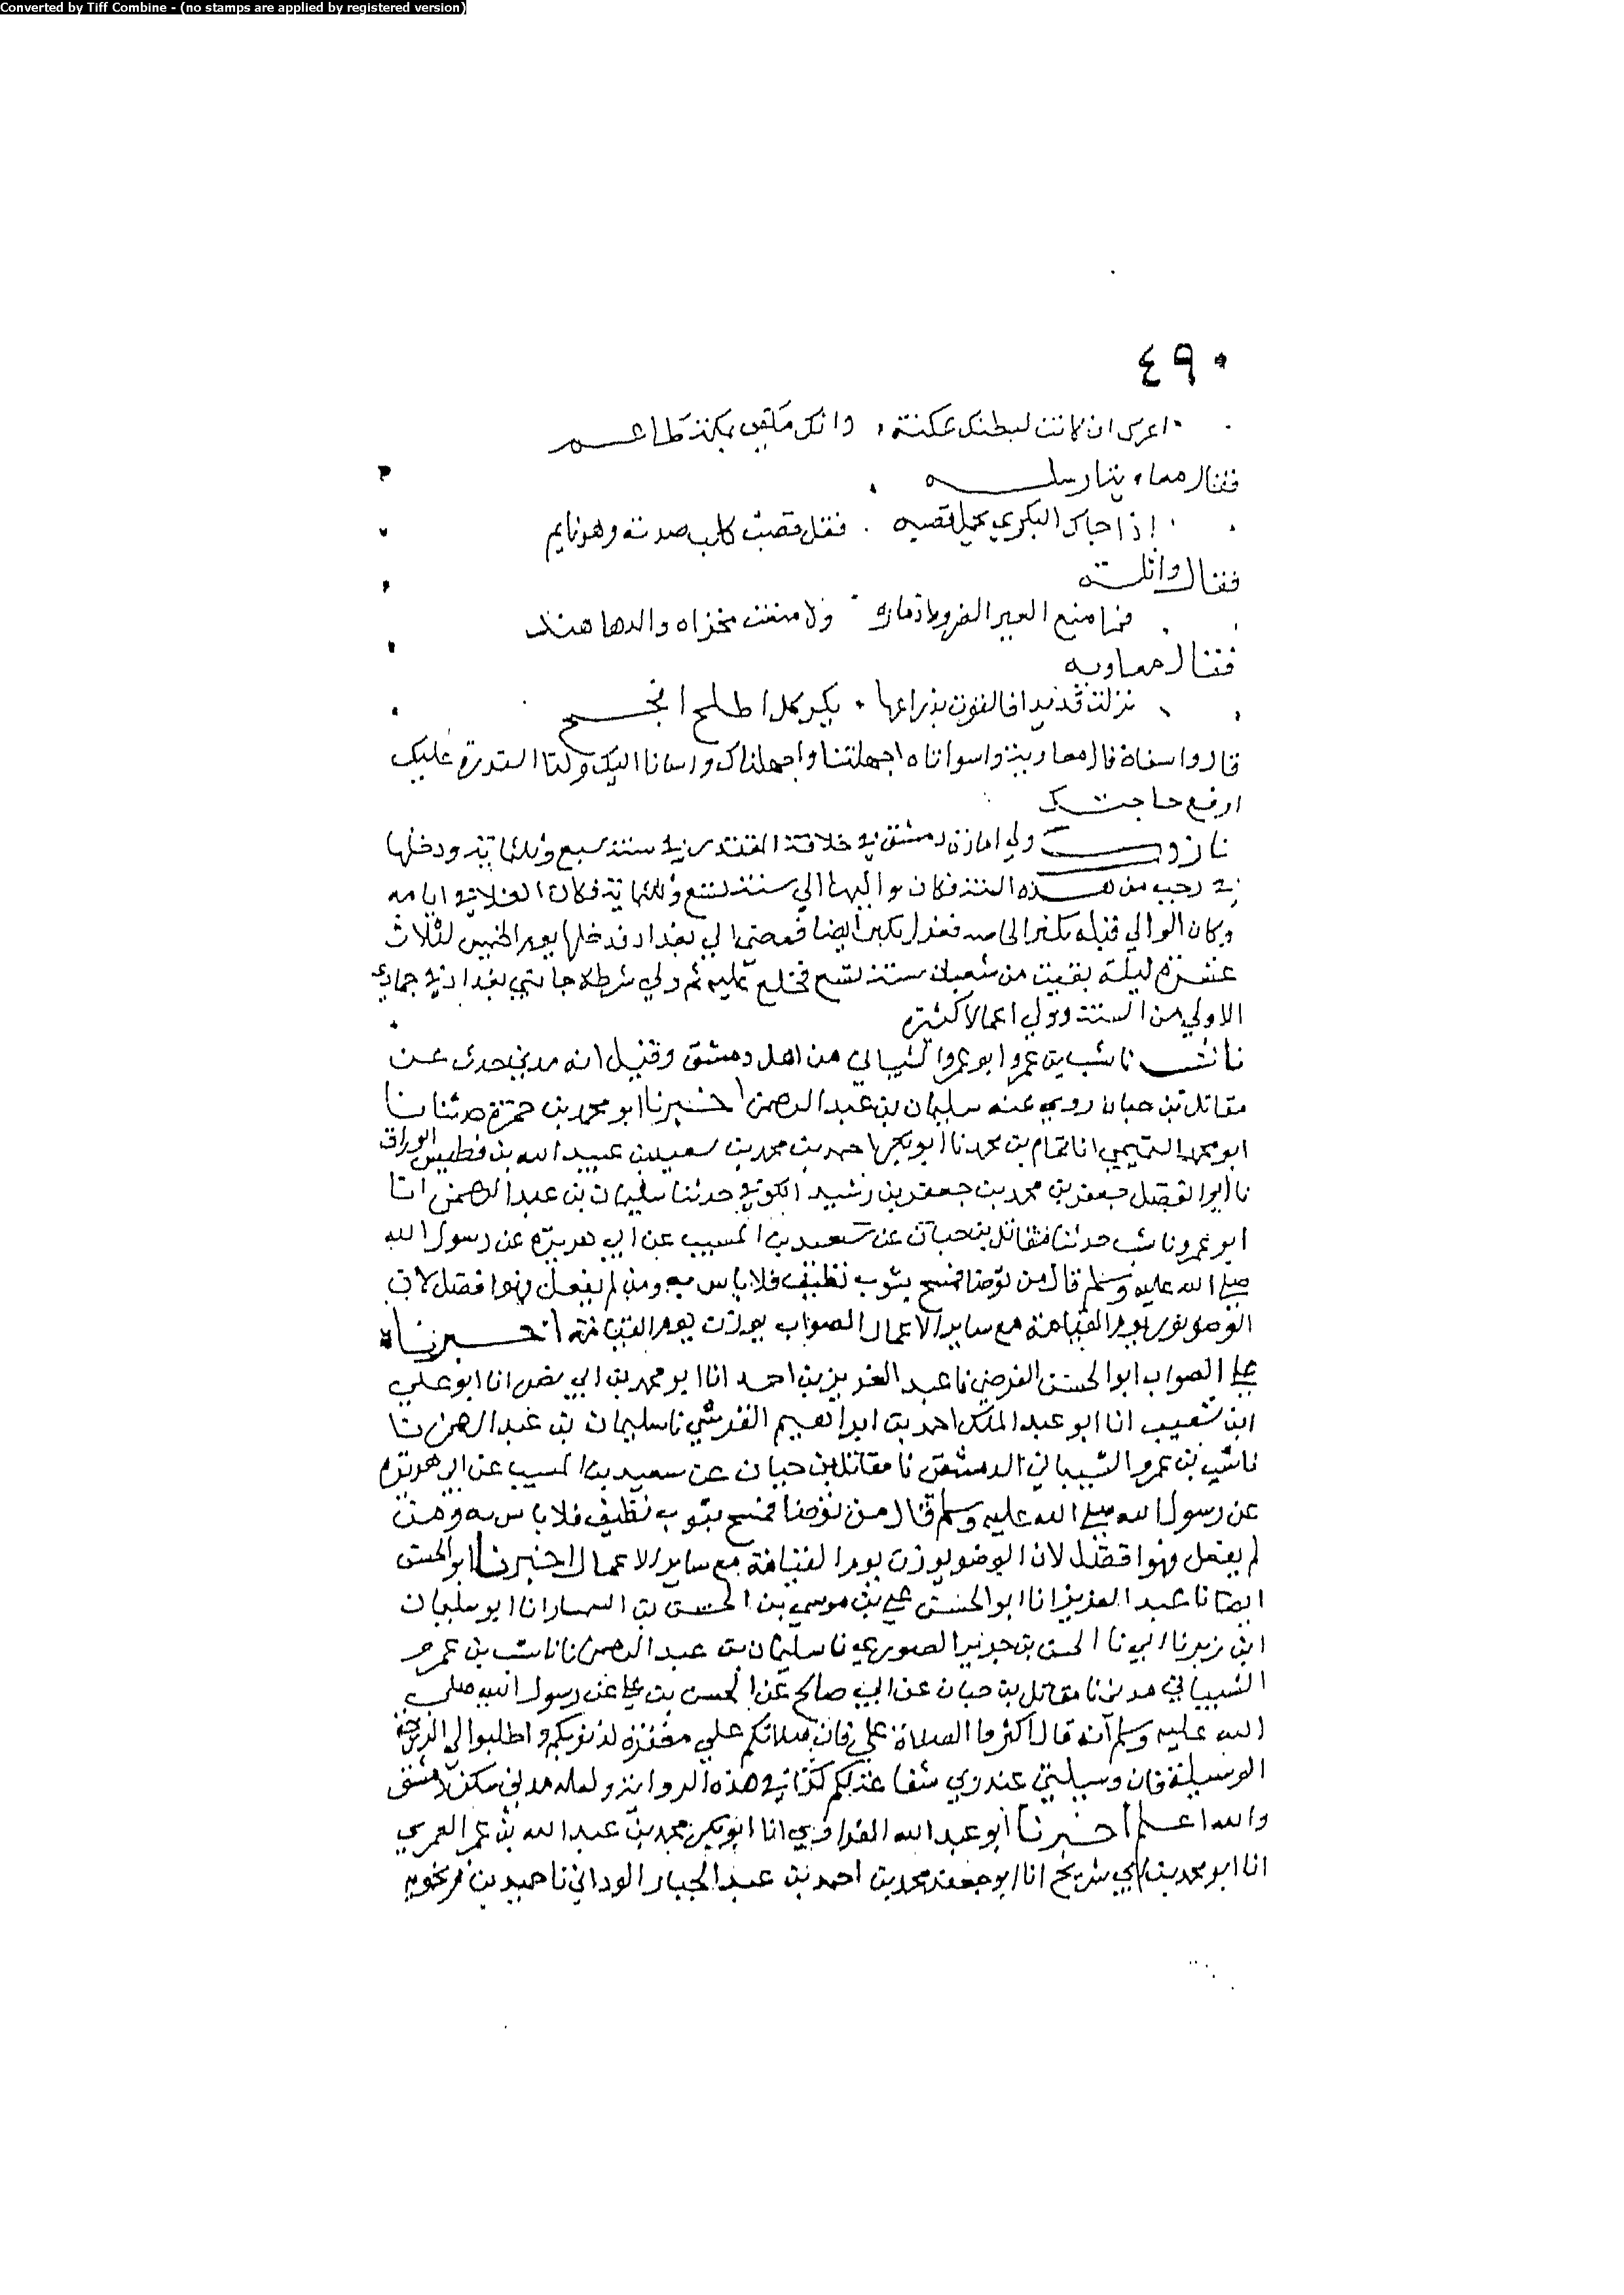 Converted by Tiff Combine - (no stamps are applied by registered version)
٤٩٠
وانك بمكة طاعم
فقال معاوية
اذا جاك البكري يحمل قصبه فقل قصب كلب صدته وهو نايم
فقال واثلة
فما منع العير ولا منعت مخزاه والدها هند
فقال معاوية
نزلت
قالوا سفاه قال معاوية واسواتاه اجهلتنا واجهلناك واسانا اليك ولنا القدرة عليك
ارفع حاجتك
نازوك ولي امارة دمشق في خلافة المقتدر في سنة سبع وثلثماية ودخلها
في رجب من هذه السنة فكان واليها الي سنة تسع وثلثماية فكان الغلا في ايامه
وكان الوالي قبله فعزل ايضا فمضي الي بغداد فدخلها يوم الخميس لثلاث
عشرة ليلة بقيت من شعبان سنة تسع فخلع عليه ثم ولي شرطة جانبي بغداد في جمادي
الاولي من السنة وولي اعمالا كثيرة
ناشب ناشب بن عمرو ابو عمرو الشيباني من اهل دمشق وقيل انه مدني حدث عن
مقاتل بن حيان روي عنه سليمان بن عبد الرحمن اخبرنا ابو محمد بن حمزة حدثنا نا
ابو محمد التميمي انا تمام بن محمد نا ابو بكر احمد بن محمد بن سعيد بن عبيد الله بن فطيس الوراق
نا ابو الفضل جعفر بن محمد بن جعفر بن رشيد الكوفي حدثنا سليمان بن عبد الرحمن انا
ابو عمرو ناشب حدثنا مقاتل بن حيان عن سعيد بن المسيب عن ابي هريرة عن رسول الله
صلي الله عليه وسلم قال من توضا فمسح بثوب نظيف فلا باس به ومن لم يفعل فهوا فضل لان
الوضو نور يوم القيامة مع ساير الاعمال الصواب يوزن يوم القيامة اخبرناه
علي الصواب ابو الحسن الفرضي نا عبد العزيز بن احمد انا ابو محمد بن ابي نصر انا ابو علي
ابن شعيب انا ابو عبد الملك احمد بن ابراهيم القرشي نا سليمان بن عبد الرحمن نا
ناشب بن عمرو الشيباني الدمشقي نا مقاتل بن حيان عن سعيد بن المسيب عن ابي هريرة
عن رسول الله صلي الله عليه وسلم قال من توضا فمسح بثوب نظيف فلا باس به ومن
لم يفعل فهوا فضل لان الوضو يوزن يوم القيامة مع ساير الاعمال اخبرنا ابو الحسن
ايضا نا عبد العزيز انا ابو الحسن علي بن موسي بن الحسين بن السمسار انا ابو سليمان
ابن زبر نا ابي نا الحسن بن جرير الصوري نا سليمان بن عبد الرحمن نا ناشب بن عمرو
الشيباني مدني نا مقاتل بن حيان عن ابي صالح عن الحسن بن علي عن رسول الله صلي
الله عليه وسلم انه قال اكثروا الصلاة علي فان صلاتكم علي مغفرة لذنوبكم واطلبوا لي الدرجة
الوسيلة فان وسيلتي عند ربي شفاعة لكم كذا في هذه الرواية ولعله مدني سكن دمشق
والله اعلم اخبرنا ابو عبد الله الفراوي انا ابو بكر محمد بن عبد الله بن عمر العمري
انا ابو محمد بن ابي شريح انا ابو جعفر محمد بن احمد بن عبد الجبار الرذاني نا حميد بن زنجويه